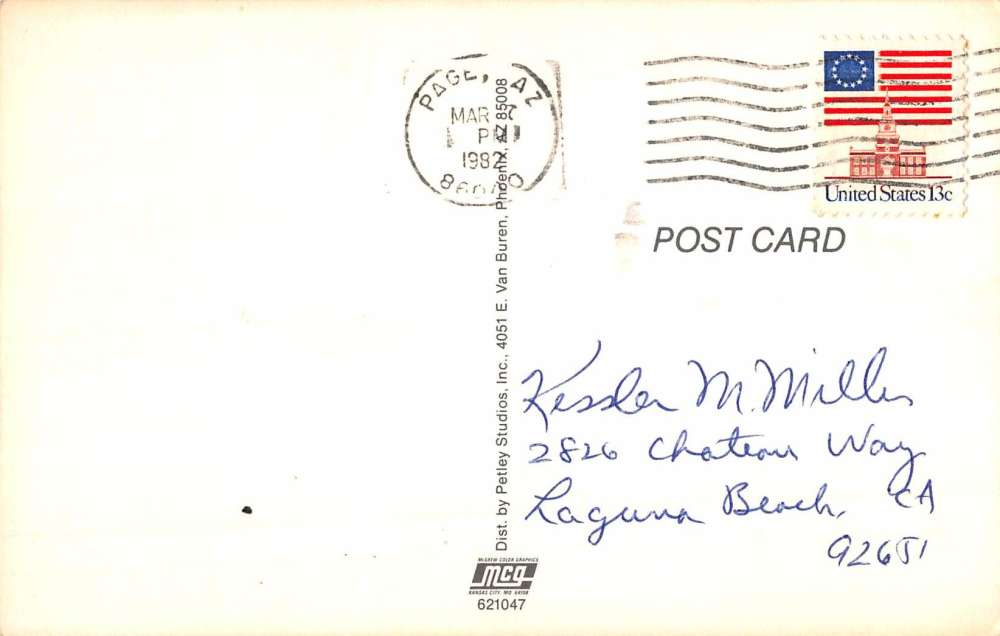 PAGE, AZ
MAR
PM
1982
860
United States 13c
POST CARD
Dist. by Petley Studios, Inc., 4051 E. Van Buren, Phoenix, AZ 85008
Kessler M. Miller
2826 Chateau Way
Laguna Beach, CA
92651
McGREW COLOR GRAPHICS
mcg
KANSAS CITY, MO 64108
621047